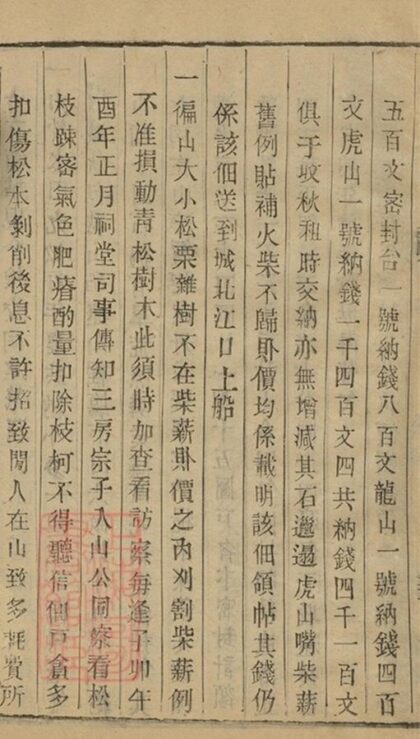 五百文密封台一號納錢八百文龍山一號納錢四百
文虎山一號納錢一千四百文四共納錢四千一百文
俱于収秋租時交納亦無增減其石邋遢虎山嘴柴薪
舊例貼補火柴不歸卧價均係載明該佃領帖其錢仍
係該佃送到城北江口上船
一徧山大小松栗雜樹不在柴薪卧價之內刈割柴薪例
不准損動青松樹木此須時加查看訪察每逢子卯午
酉年正月祠堂司事傳知三房宗子入山公同察看松
枝踈密氣色肥瘠酌量扣除枝柯不得聽信佃戶貪多
扣傷松本剝削後息不許招致閒人在山致多耗費所